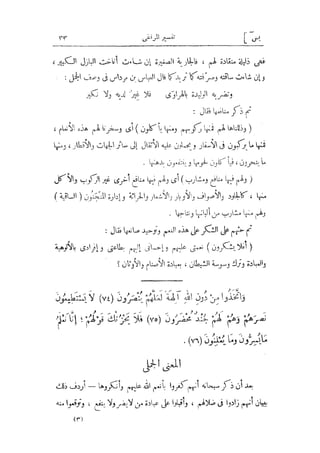 يس] تفسير المراغى ٣٣
فهى ذليلة منقادة لهم ، فالجارية الصغيرة إن شاءت أناخت البازل الكبير ،
وإن شاءت ساقته وصرفته كما تريد كما قال العباس بن مرداس فى وصف الجمل :
وتضربه الوليدة بالهراوى فلا غير لديه ولا نكير
ثم ذكر منافعها فقال :
( وذللناها لهم فمنها ركوبهم ومنها يأكلون ) أى وسخرنا لهم هذه الأنعام ،
فمنها ما يركبون فى الأسفار ويحملون عليه الأثقال إلى سائر الجهات والأقطار ، ومنها
ما ينحرون ، فيأكلون لحومها وينتفعون بدهنها .
( ولهم فيها منافع ومشارب ) أى ولهم فيها منافع أخرى غير الركوب والأكل
منها ، كالجلود والأصواف والأوبار والأشعار والحراثة وإدارة المنجنون ( الساقية )
ولهم منها مشارب من ألبانها ونتاجها .
ثم حثهم على الشكر على هذه النعم وتوحيد صانعها فقال :
( أفلا يشكرون ) نعمتى عليهم وإحسانى إليهم بطاعتى وإفرادى بالألوهية
والعبادة وترك وسوسة الشيطان ، بعبادة الأصنام والأوثان ؟
وَاتَّخَذُوا مِنْ دُونِ اللهِ آلِهَةً لَعَلَّهُمْ يُنْصَرُونَ (٧٤) لَا يَسْتَطِيعُونَ
نَصْرَهُمْ وَهُمْ لَهُمْ جُنْدٌ مُحْضَرُونَ (٧٥) فَلَا يَحْزُنْكَ قَوْلُهُمْ ؛ إِنَّا نَعْلَمُ
مَا يُسِرُّونَ وَمَا يُعْلِنُونَ (٧٦) .
المعنى الجملى
بعد أن ذكر سبحانه أنهم كفروا بأنعم الله عليهم وأنكروها — أردف ذلك
ببيان أنهم زادوا فى ضلالهم ، وأقبلوا على عبادة من لا يضر ولا ينفع ، وتوقعوا منه
(٣)